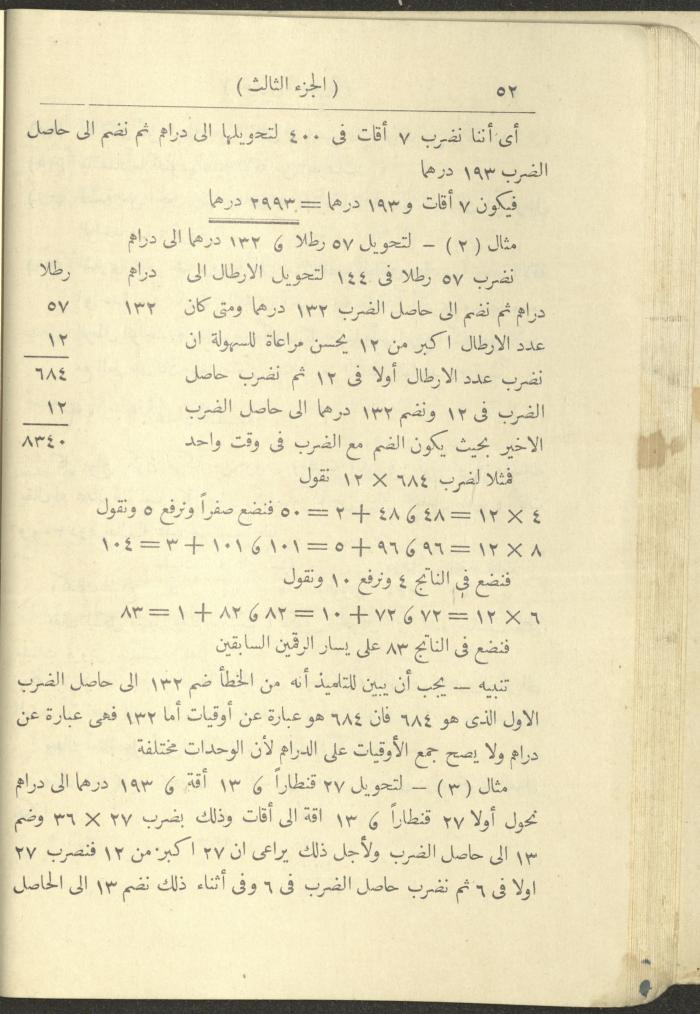 ٥٢
( الجزء الثالث )
أى أننا نضرب ٧ أقات فى ٤٠٠ لتحويلها الى دراهم ثم نضم الى حاصل
الضرب ١٩٣ درهما
فيكون ٧ أقات و ١٩٣ درهما = ٢٩٩٣ درهما
مثال ( ٢ ) – لتحويل ٥٧ رطلا و ١٣٢ درهما الى دراهم
نضرب ٥٧ رطلا فى ١٤٤ لتحويل الارطال الى
دراهم ثم نضم الى حاصل الضرب ١٣٢ درهما ومتى كان
عدد الارطال اكبر من ١٢ يحسن مراعاة للسهولة ان
نضرب عدد الارطال أولا فى ١٢ ثم نضرب حاصل
الضرب فى ١٢ ونضم ١٣٢ درهما الى حاصل الضرب
الاخير بحيث يكون الضم مع الضرب فى وقت واحد
دراهم رطلا
١٣٢ ٥٧
١٢
٦٨٤
١٢
٨٣٤٠
فمثلا لضرب ٦٨٤ × ١٢ نقول
٤ × ١٢ = ٤٨ و ٤٨ + ٢ = ٥٠ فنضع صفراً ونرفع ٥ ونقول
٨ × ١٢ = ٩٦ و ٩٦ + ٥ = ١٠١ و ١٠١ + ٣ = ١٠٤
فنضع فى الناتج ٤ ونرفع ١٠ ونقول
٦ × ١٢ = ٧٢ و ٧٢ + ١٠ = ٨٢ و ٨٢ + ١ = ٨٣
فنضع فى الناتج ٨٣ على يسار الرقمين السابقين
تنبيه – يجب أن يبين للتاميذ أنه من الخطأ ضم ١٣٢ الى حاصل الضرب
الاول الذى هو ٦٨٤ فان ٦٨٤ هو عبارة عن أوقيات أما ١٣٢ فهى عبارة عن
دراهم ولا يصح جمع الأوقيات على الدراهم لأن الوحدات مختلفة
مثال ( ٣ ) – لتحويل ٢٧ قنطاراً و ١٣ أقة و ١٩٣ درهما الى دراهم
نحول أولا ٢٧ قنطاراً و ١٣ اقة الى أقات وذلك بضرب ٢٧ × ٣٦ وضم
١٣ الى حاصل الضرب ولأجل ذلك يراعى ان ٢٧ اكبر من ١٢ فنضرب ٢٧
اولا فى ٦ ثم نضرب حاصل الضرب فى ٦ وفى أثناء ذلك نضم ١٣ الى الحاصل